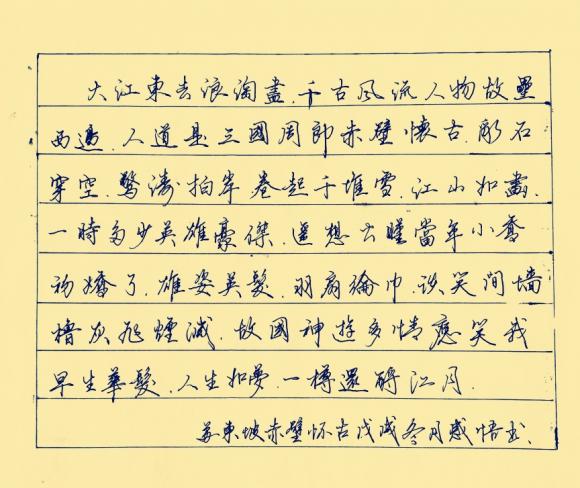 大江東去浪淘盡.千古風流人物故壘
西邊.人道是三國周郎赤壁懷古.彫石
穿空.驚濤拍岸卷起千堆雪.江山如畫.
一時多少英雄豪傑.遥想公瑾當年小喬
初嫁了.雄姿英髮.羽扇綸巾.談笑间墙
櫓灰飛煙滅.故國神遊多情應笑我
早生華髮.人生如夢.一樽還酹江月.
苏東坡赤壁怀古戊戌冬月感悟书.